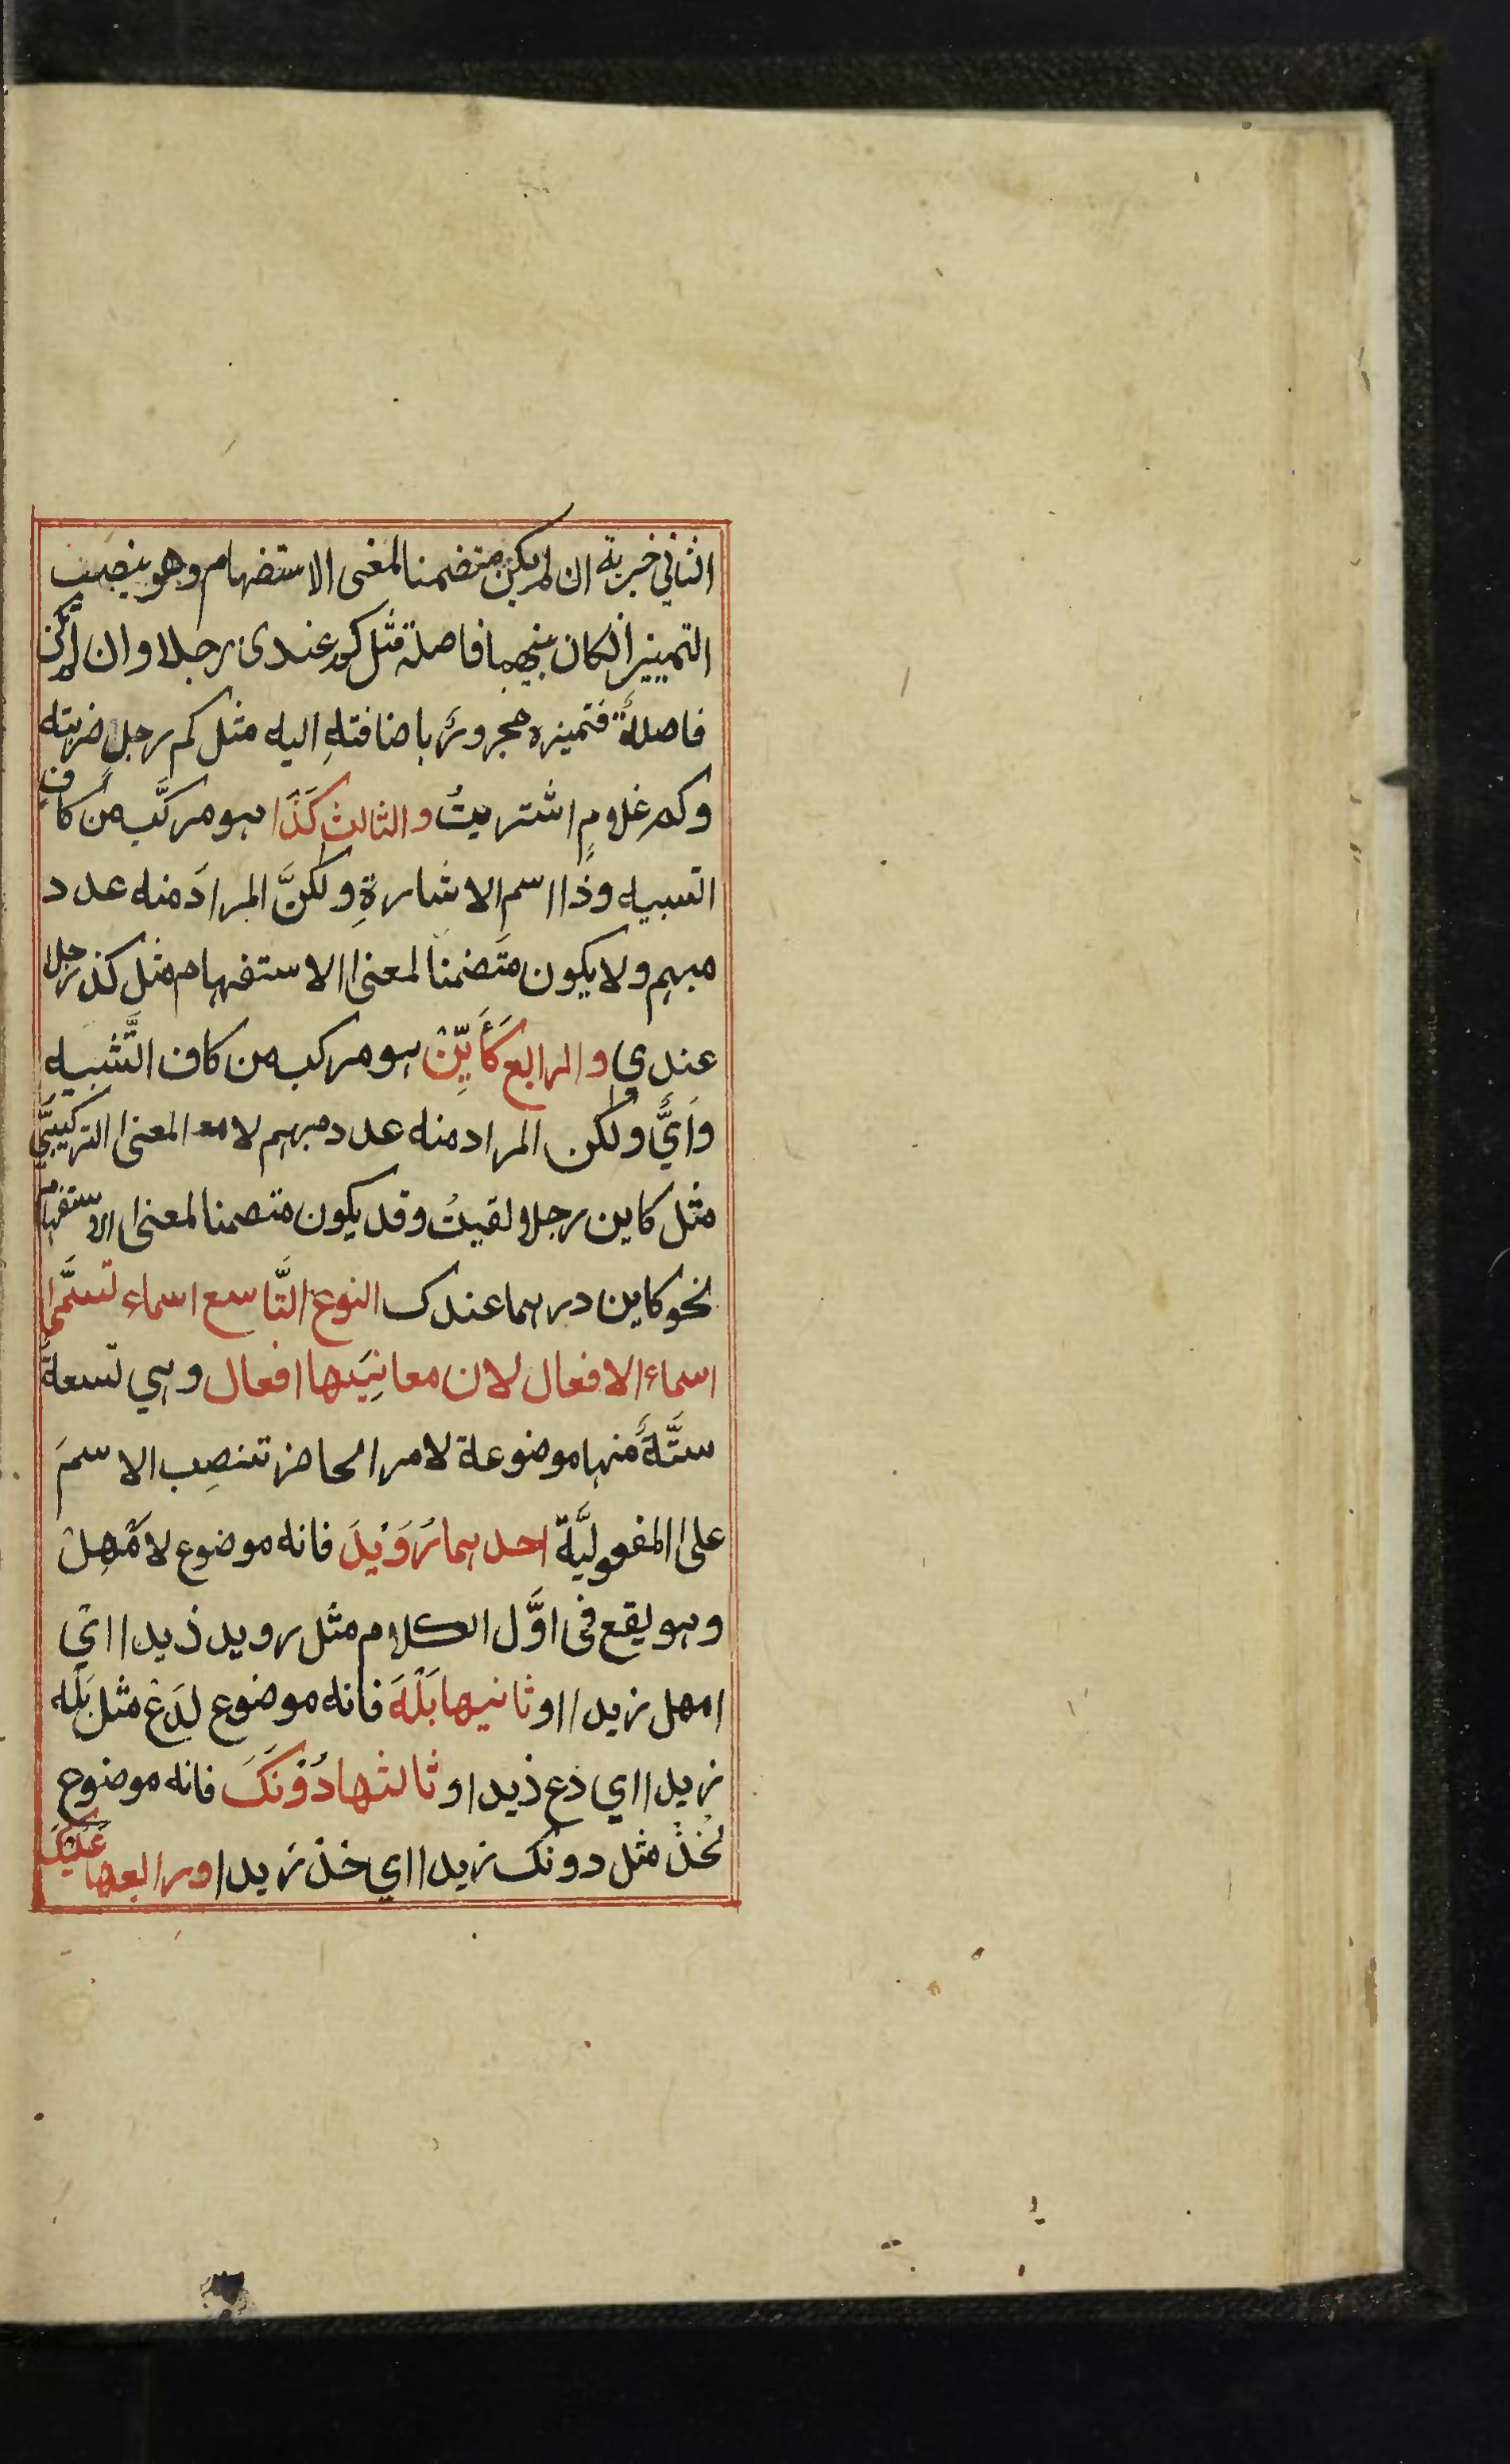 الثاني خبرية ان لم يكن متضمنا لمعنى الاستفهام وهو ينصب
التمييز ان كان بينهما فاصلة مثل كم عندى رجلا وان لم يكن
فاصلةٌ فتميزه مجرورٌ باضافتهِ اليه مثل كم رجلٍ ضربته
وكم غلامٍ اشتريتُ والثالث كَذَا هو مركَّب من كافِ
التسبيه وذا اسم الاشارةِ ولكنَّ المرادَ منه عدد
مبهم ولا يكون متَضمنا لمعنى الاستفهام مثل كذ رجلا
عندي والرابع كَأَيِّنْ هو مركب من كاف التَّشبيه
وَأَيٍّ ولكن المراد منه عدد مبهم لا مع المعنى التركيبيَّ
مثل كاين رجلا لقيتُ وقد يكون متصمنا لمعنى الاستفهام
نحو كاين درهما عندك النوع التَّاسع اسماء تسمَّى
اسماء الافعال لان معانِيَها افعال وهي تسعةٌ
ستَّةٌ منها موضوعة لامر الحاضر تنصِب الاسمَ
على المفعوليَّة احدهما رُوَيْدَ فانه موضوع لاَمْهِلْ
وهو يقع فى اوَّل الكلام مثل رويد ذيدا اي
امهل زيدا او ثانيها بَلْهَ فانه موضوع لدَعْ مثل بَلْه
زيدا اي دَع ذيدا و ثالثها دُوْنَكَ فانه موضوع
لخُذْ مثل دونك زيدا اي خذ زيدا ورابعها عَلَيْكَ